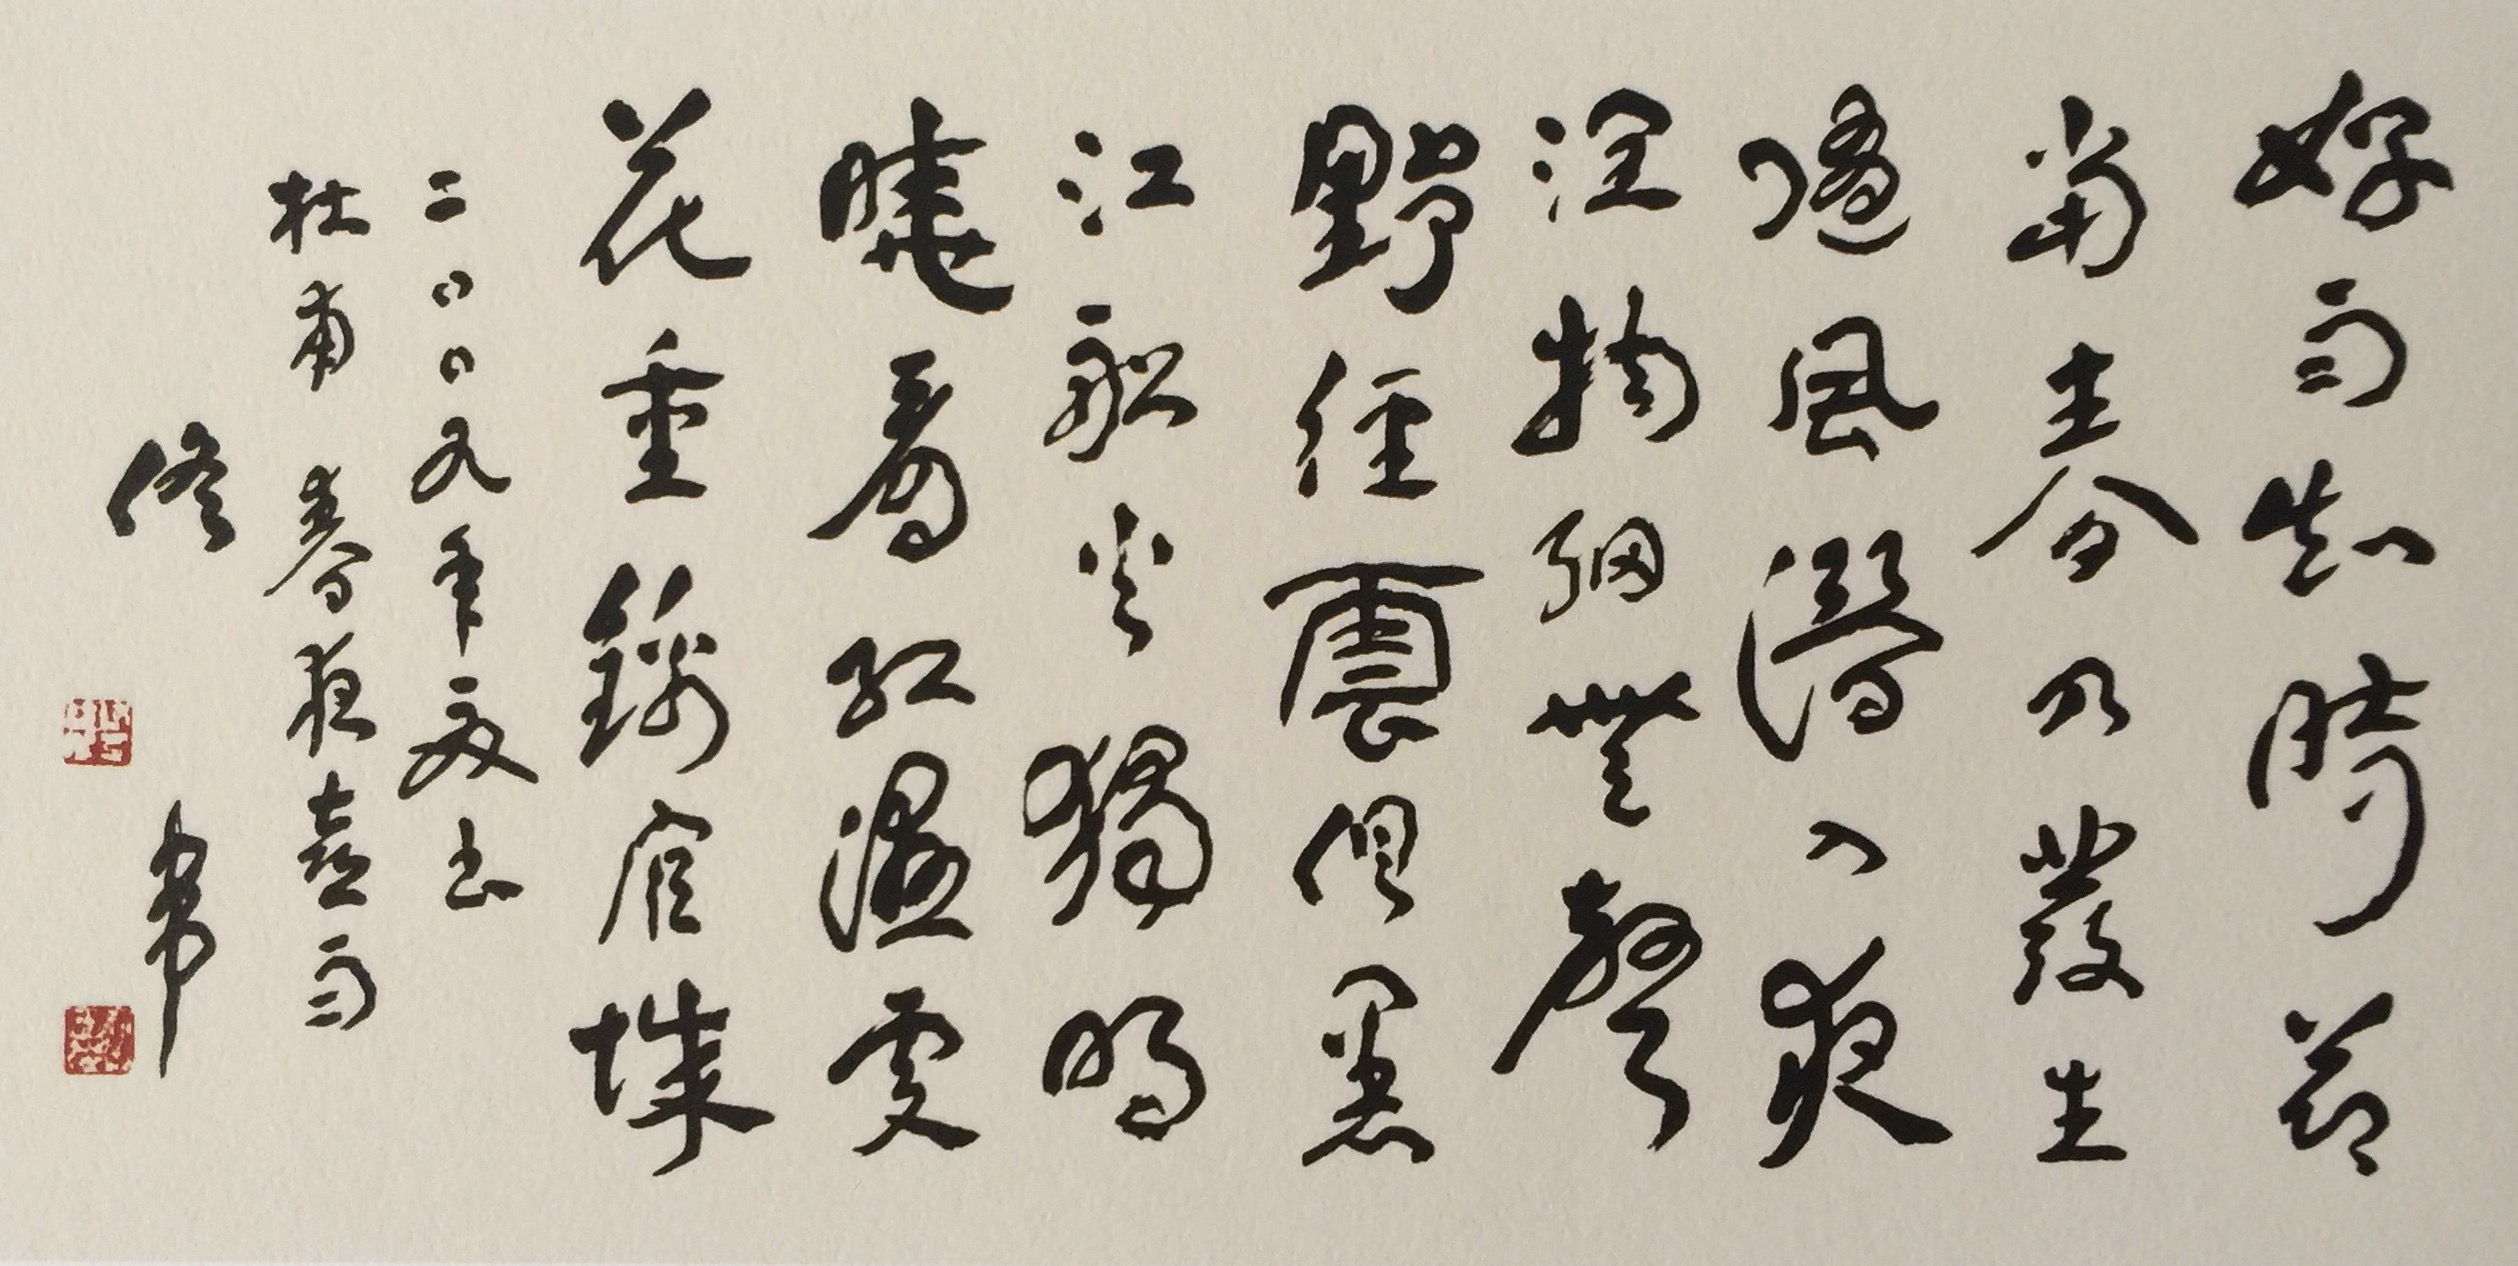 好雨知時節
當春乃發生
隨風潛入夜
潤物細無聲
野徑雲俱黑
江船火獨明
曉看紅濕處
花重錦官城
二〇〇九年敬書
杜甫春夜喜雨